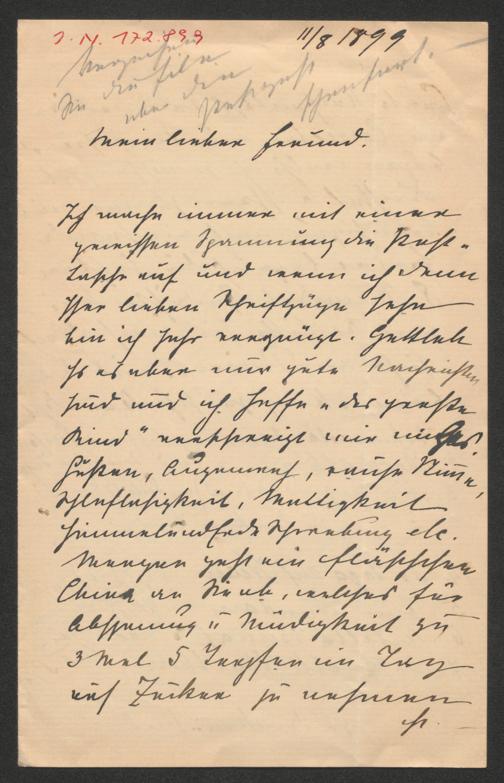 J. N. 172.899
11/8 1899
Verzeihen
Sie die Eile
über den
Mein lieber Freund.
Ich mache immer mit einer
gewissen Spannung die Post-
tasche auf und wenn ich dann
Ihre lieben Schriftzüge sehe
bin ich sehr vergnügt. Gottlob
daß es aber nur gute Nachrichten
sind und ich hoffe „das große
Kind" verschweigt mir nichts.
Husten, Augenweh, rauhe Stimme,
Schlaflosigkeit, Mattigkeit
Himmelund Erde etc.
Morgen geht ein Fläschchen
China an Sie ab, welches für
Abspannung u Müdigkeit zu
3 Mal 5 Tropfen im Tag
auf Zucker zu nehmen
ist.